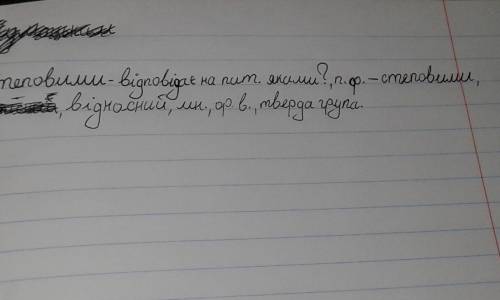 теповими - відповідає на пит. якими?, п.ф. - степовими,
відносний, мн., ор.в., тверда група.